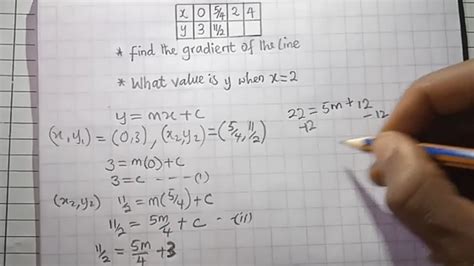 x 0 5/4 2 4
y 3 11/2
* find the gradient of the line
* What value is y when x=2
y = mx + c
(x, y₁) = (0,3), (x₂, y₂) = (5/4, 11/2)
3 = m(0) + c
3 = c ---- (i)
(x₂, y₂) 11/2 = m(5/4) + c
11/2 = 5m/4 + c --- (ii)
11/2 = 5m/4 + 3
22 = 5m + 12
-12 -12